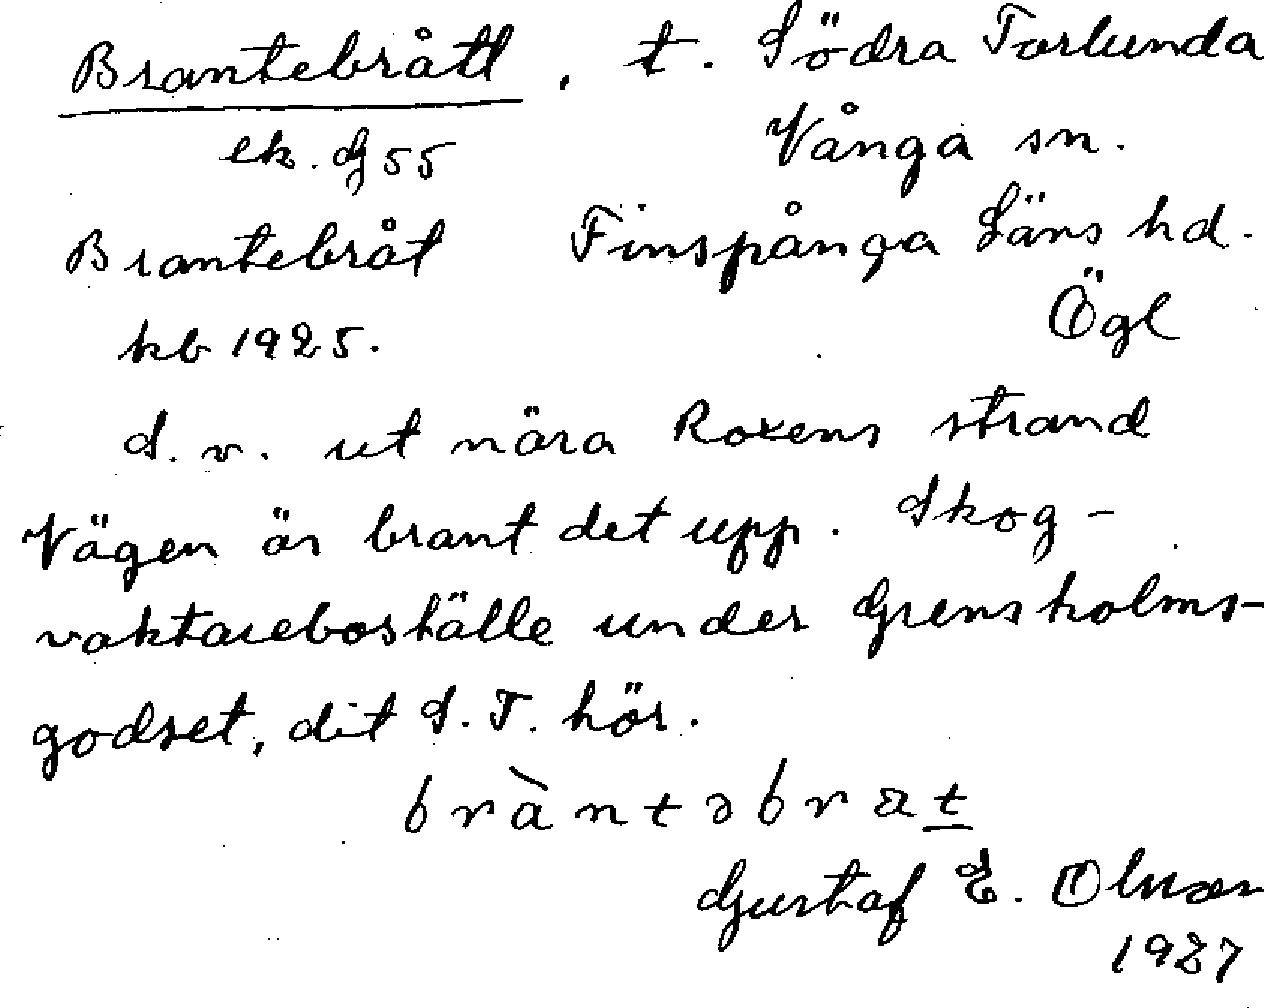 Brantebrått, t. Södra Torlunda
ek. G 55 Vånga sn.
Brantebråt Finspånga Läns hd.
kb 1925. Ögl
S. v. ut nära Roxens strand
Vägen är brant det upp. Skog-
vaktareboställe under Grensholms-
godset, dit S. T. hör.
bràntəbrat
Gustaf E. Olsson
1927